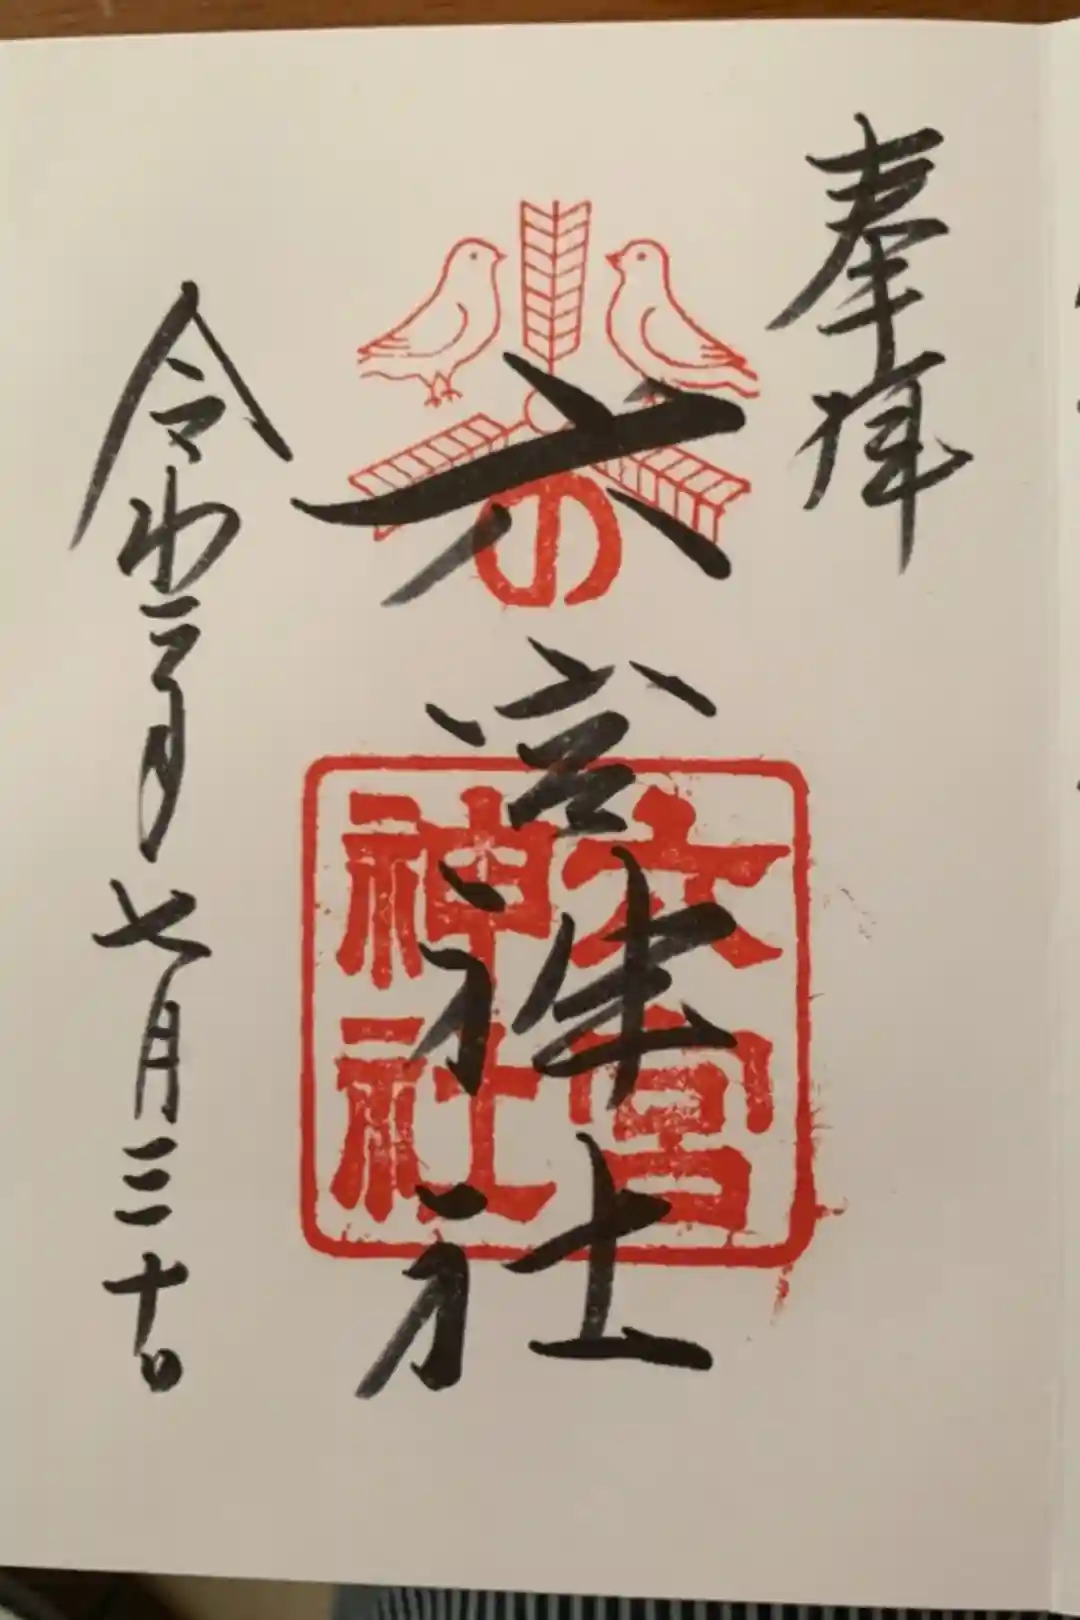 奉拝
六宮神社
の
六宮
神社
令和三年七月三十日